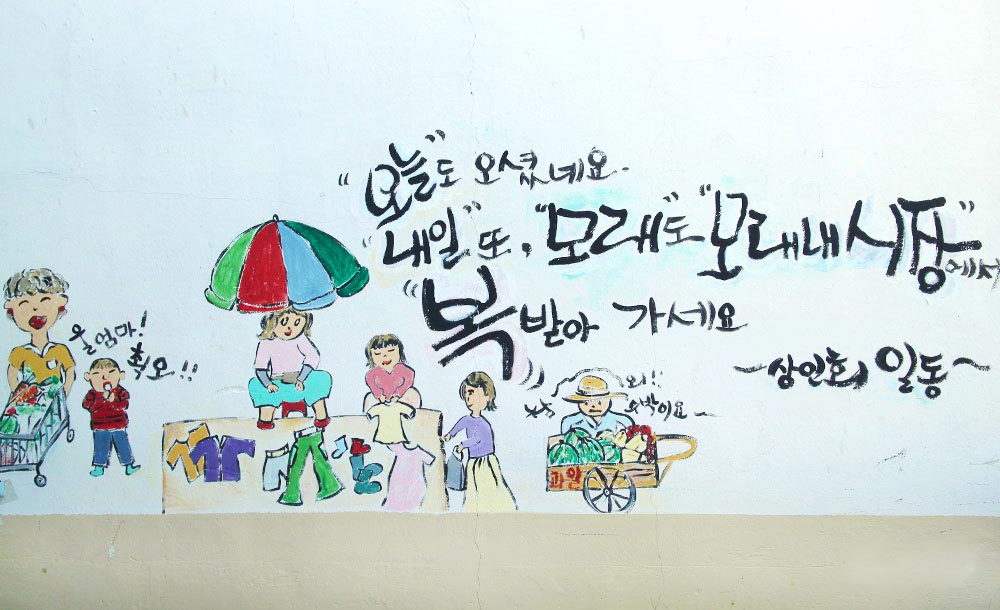 "오늘"도 오셨네요..
"내일"또, "모래"도 "모래내시장"에서
"복"받아 가세요
~상인회 일동~
울엄마!
최고!!
외!!
수박이요~
과일